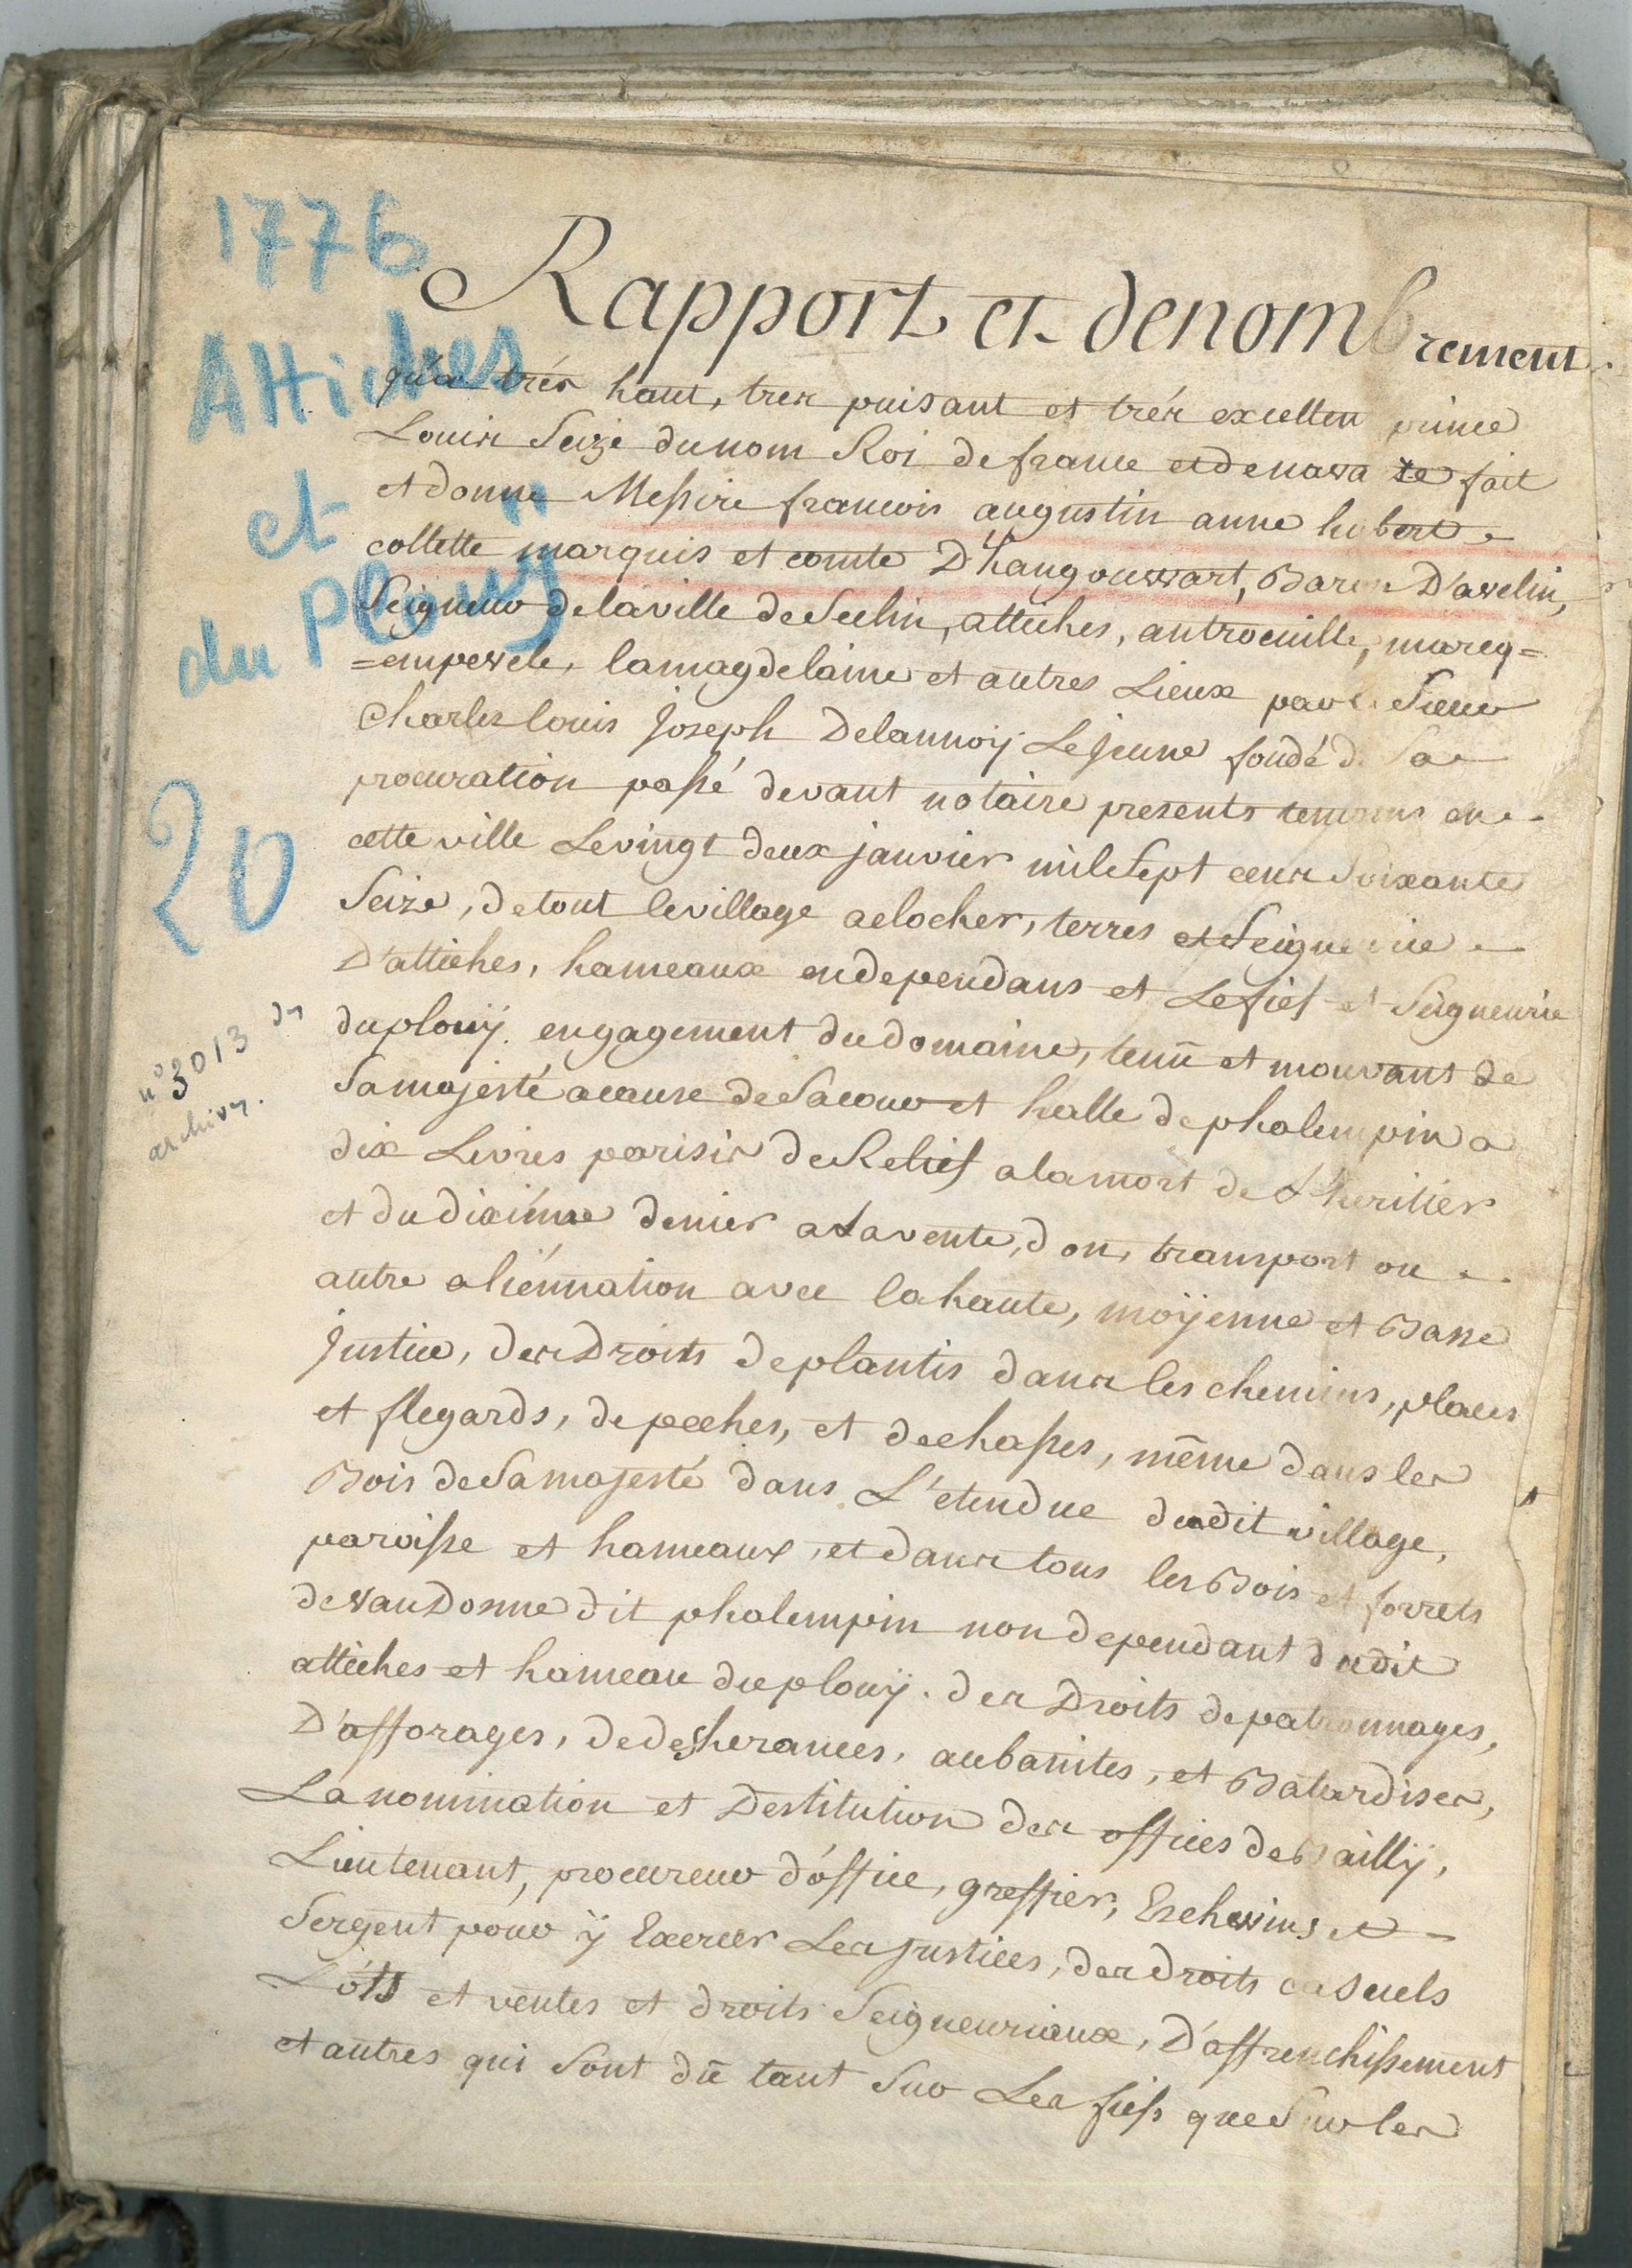 1776
Attiches
et
du Plouÿ
20
n° 3013 des
archives.
Rapport et denombrement.
qu'a trés haut, tres puisant et trés excellen prince
Louis Seize du nom Roi de france et de nava re fait
et donne Messire francois augustin anne hubert
collette marquis et comte D'hangouwart, Baron D'avelin,
Seigneur de la ville de Seclin, attiches, antroeuille, marcq=
=empewele, lamagdelaine et autres Lieux par le Sieur
Charles louis Joseph Delannoÿ Lejeune fondé de Sa
procuration passé devant notaire presents temoins en
cette ville Le vingt deux janvier mile Sept cens Soixante
Seize, de tout le village aclocher, terres et Seigneurie
D'attiches, hameaux en dependans et Le fief et Seigneurie
du plouÿ. engagement du domaine, tenu et mouvant de
Sa majesté a cause de Sa cour et halle de phalempin a
dix Livres parisis de Relief a la mort de L'heritier
et du dixiéme denier a La vente, don, transport ou
autre aliénnation avec la haute, moÿenne et Basse
Justice, des Droits de plantis dans les chemins, places
et flegards, de peches, et de chasses, même dans les
Bois de Sa majesté dans L'etendue dudit village,
paroisse et hameaux, et dans tous les Bois et forrets
de wandosme dit phalempin non dependant dudit
attiches et hameau du plouÿ. des Droits de patronnages,
D'afforages, de desherances, aubanites, et Batardises,
La nomination et Destitution des offices de Baillÿ,
Lieutenant, procureur d'office, greffier, Eschevins et
Sergent pour ÿ Exercer Les justices, des droits casuels
Lots et ventes et droits Seigneuriaux, D'affrenchissement
et autres qui Sont dû tant Sur Les fiefs que Sur les